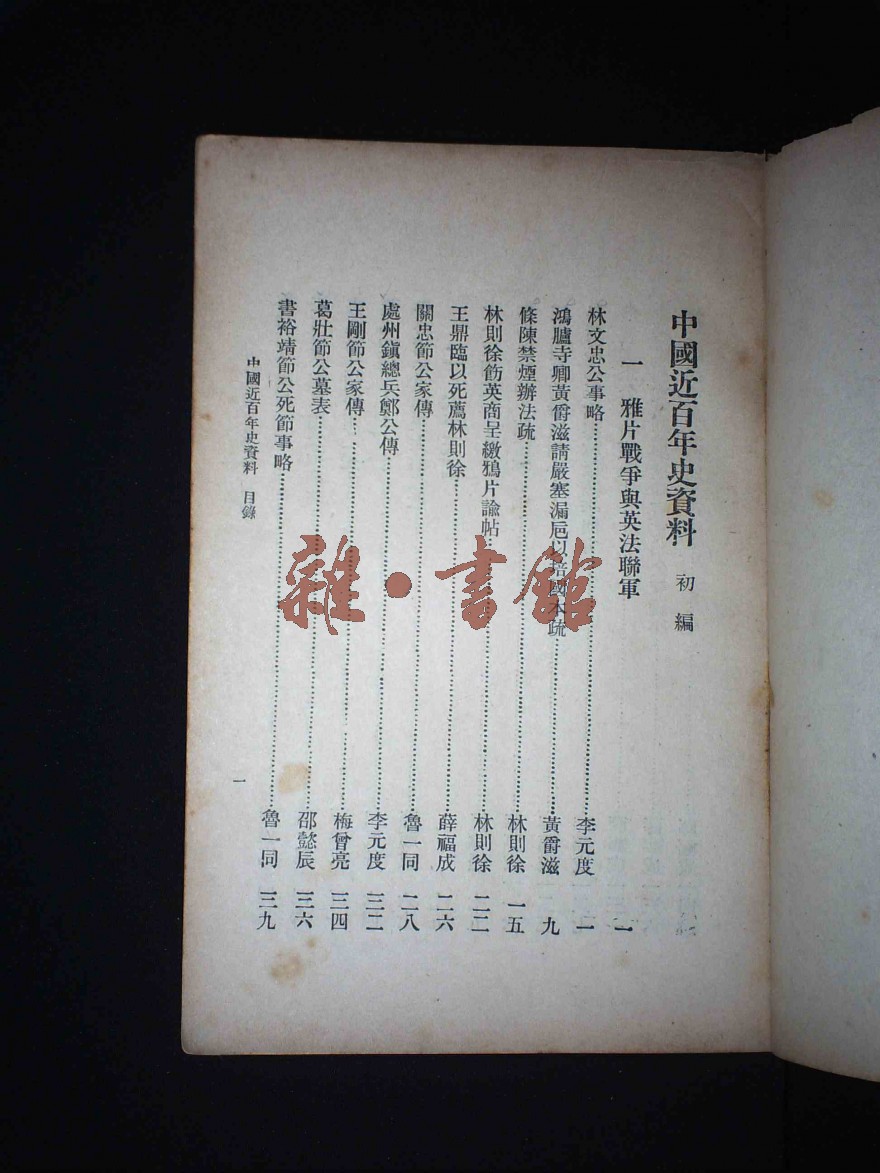 中國近百年史資料 初編
一 雅片戰爭與英法聯軍 一
林文忠公事略 李元度 一
鴻臚寺卿黃爵滋請嚴塞漏巵以培國本疏 黃爵滋 九
條陳禁煙辦法疏 林則徐 一五
林則徐飭英商呈繳鴉片諭帖 林則徐 二二
王鼎臨以死薦林則徐 薛福成 二六
關忠節公家傳 魯一同 二八
處州鎭總兵鄭公傳 李元度 三二
王剛節公家傳 梅曾亮 三四
葛壯節公墓表 邵懿辰 三六
書裕靖節公死節事略 魯一同 三九
中國近百年史資料 目錄
一
雜·書館